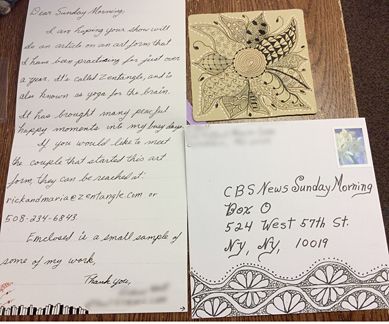 Dear Sunday Morning,
I am hoping your show will
do an article on an art form that
I have been practicing for just over
a year. It's called Zentangle, and is
also known as yoga for the brain.
It has brought many peaceful
happy moments into my busy days.
If you would like to meet
the couple that started this art
form, they can be reached at:
rickandmaria@zentangle.com or
508-234-6843.
Enclosed is a small sample of
some of my work,
Thank you,
CBS News Sunday Morning
Box O
524 West 57th St.
NY, NY, 10019